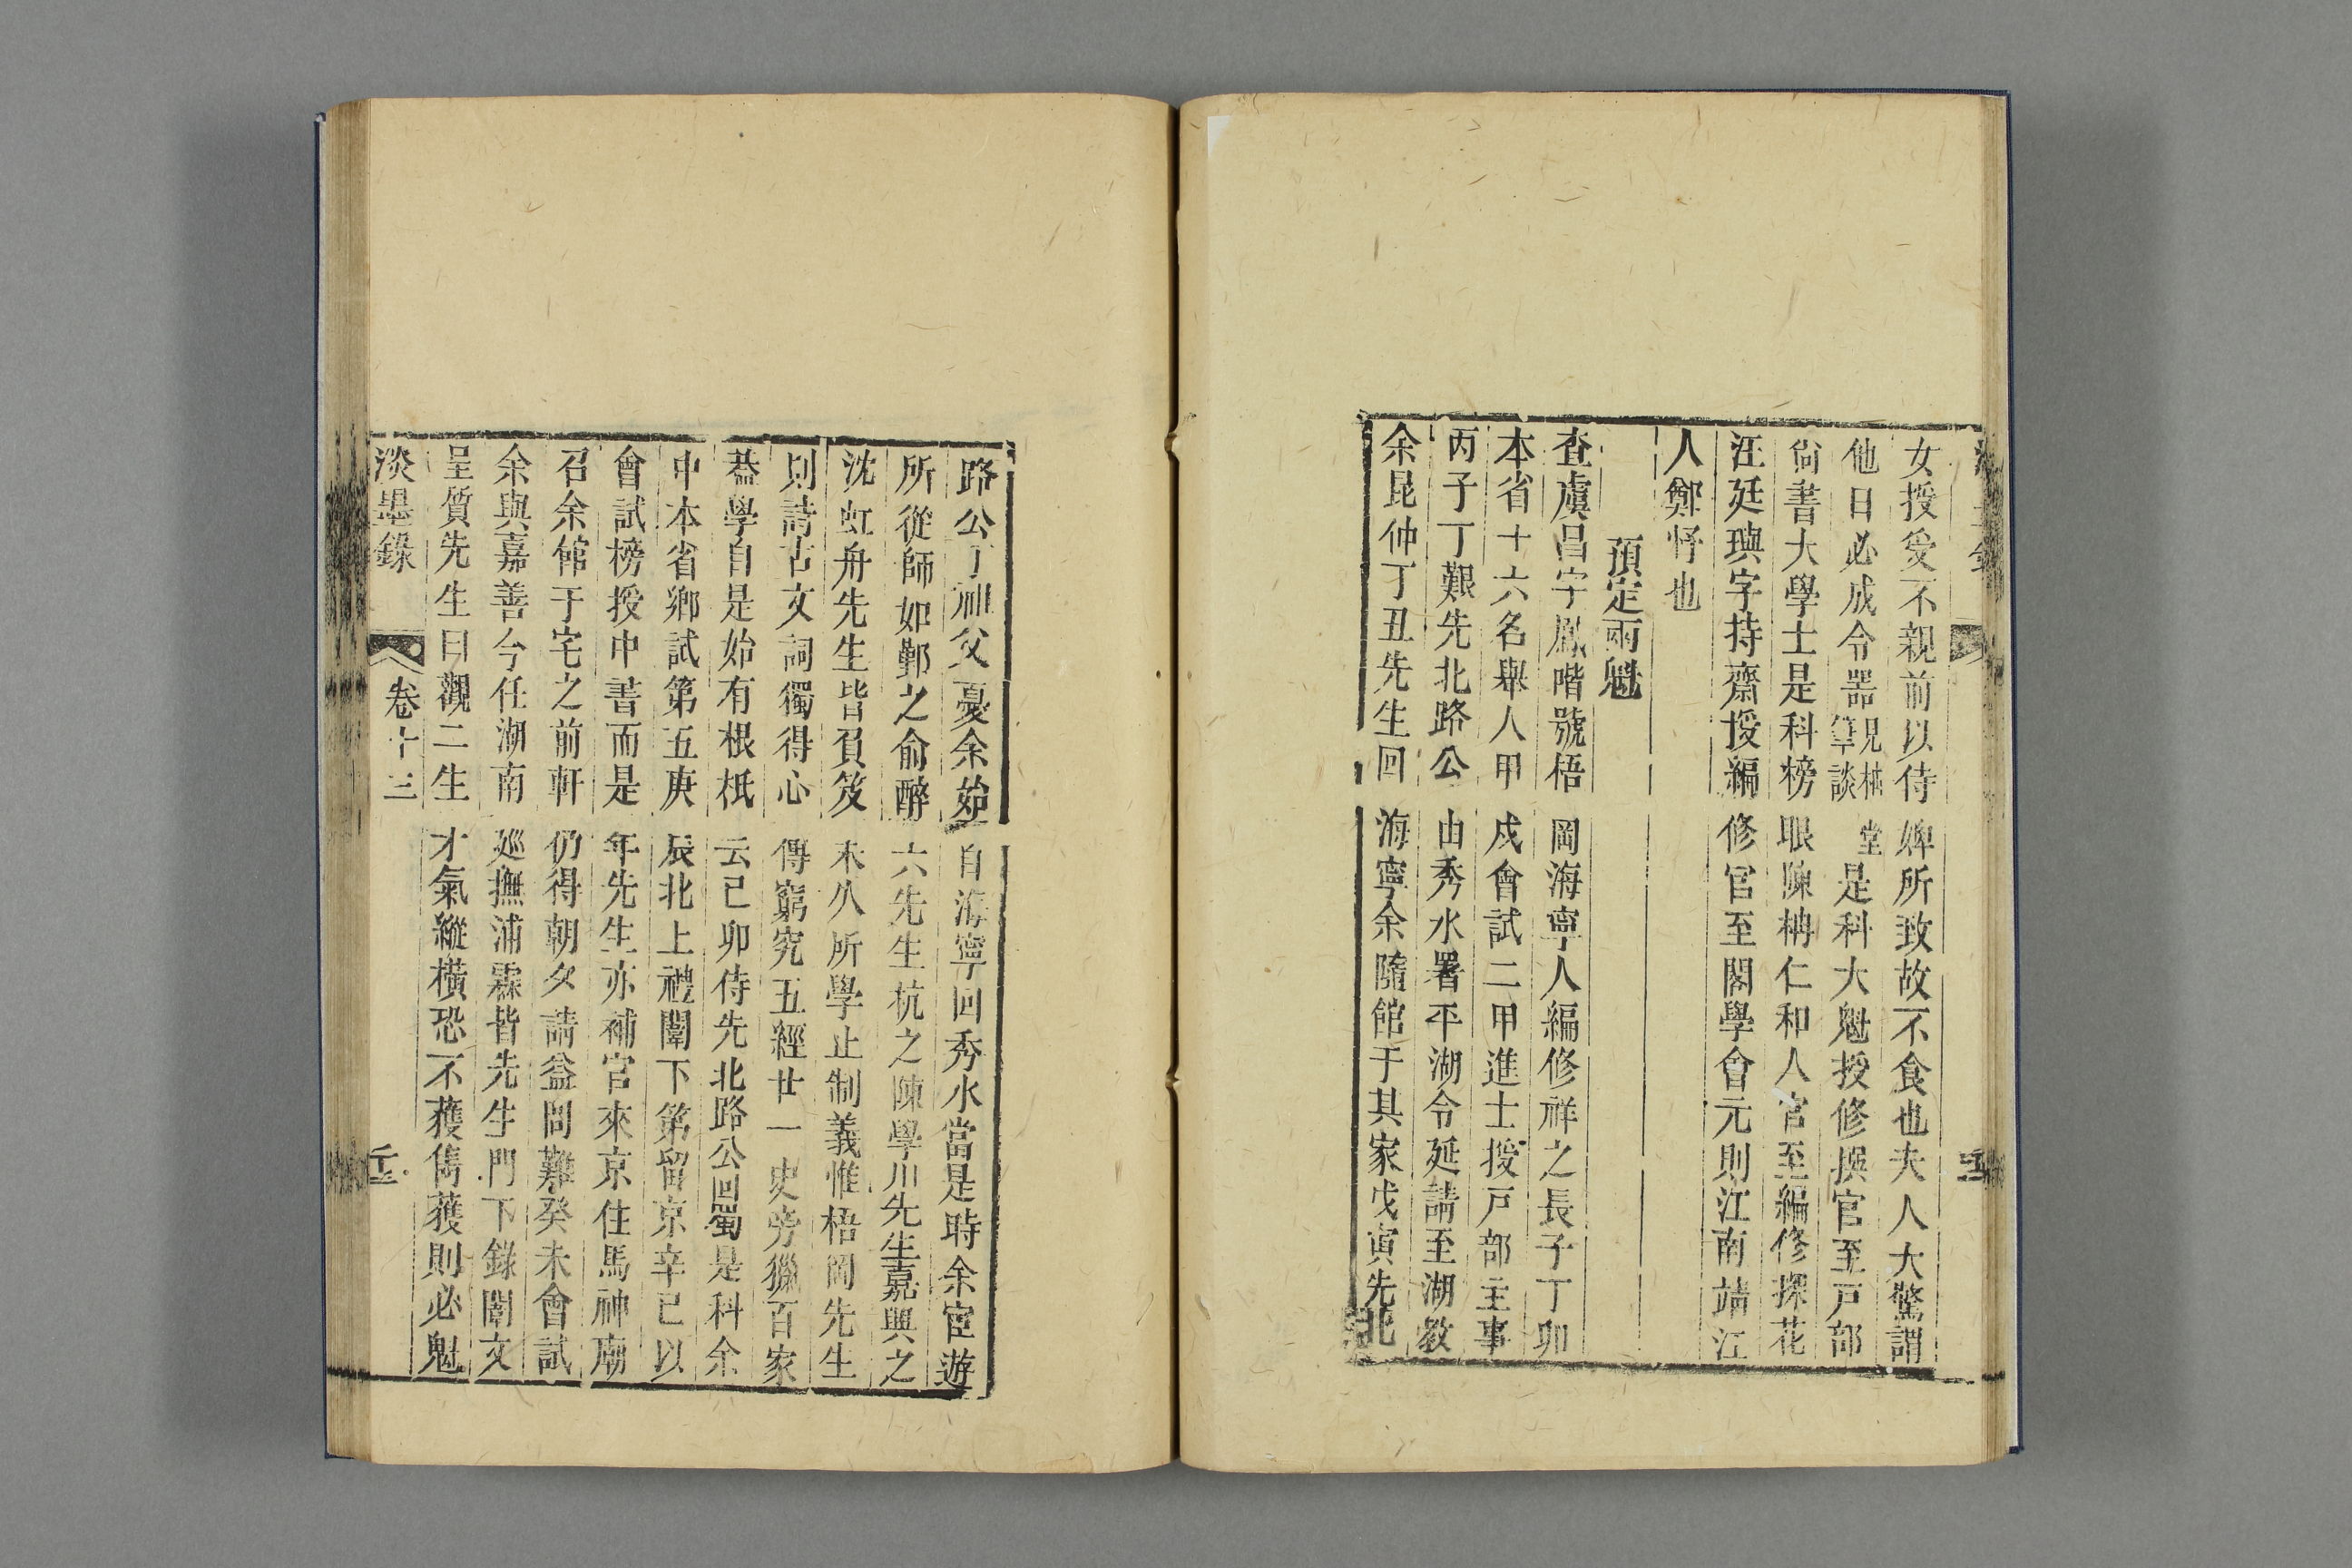 女授受不親前以侍婢所致故不食也夫人大驚謂
他日必成令器見楠筆談堂是科大魁授修撰官至戸部
尚書大學士是科榜眼陳柟仁和人官至編修探花
汪廷璵字持齋授編修官至閣學會元則江南靖江
人鄭忬也
預定兩魁
查虞昌字鳳喈號梧岡海寧人編修祥之長子丁卯
本省十六名舉人甲戌會試二甲進士授戸部主事
丙子丁艱先北路公由秀水署平湖令延請至湖教
余昆仲丁丑先生回海寧余隨館于其家戊寅先北
路公丁祖父憂余始自海寧回秀水當是時余宦遊
所從師如鄞之俞醉六先生杭之陳學川先生嘉興之
沈虹舟先生皆負笈未久所學止制義惟梧岡先生
則詩古文詞獨得心傳窮究五經廿一史旁獵百家
葢學自是始有根柢云己卯侍先北路公回蜀是科余
中本省鄉試第五庚辰北上禮闈下第留京辛巳以
會試榜授中書而是年先生亦補官來京住馬神廟
召余館于宅之前軒仍得朝夕請益問難癸未會試
余與嘉善今任湖南廵撫浦霖皆先生門下錄闈文
呈質先生曰觀二生才氣縱橫恐不獲雋獲則必魁
淡墨錄 卷十三